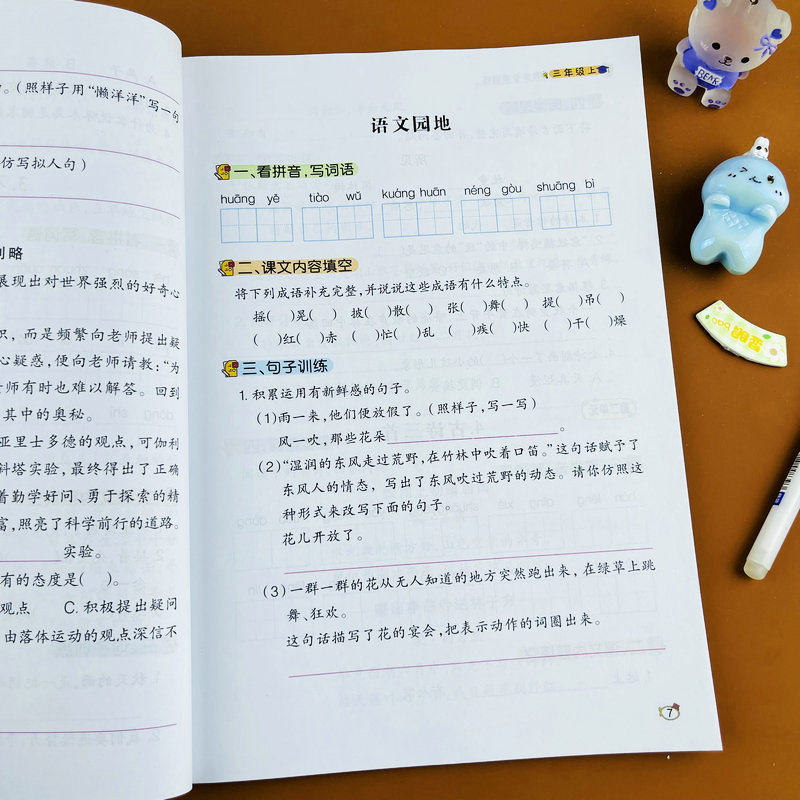 。(照样子用“懒洋洋”写一句
仿写拟人句)
则略
展现出对世界强烈的好奇心
识，而是频繁向老师提出疑
心疑惑，便向老师请教：“为
老师有时也难以解答。回到
其中的奥秘。
亚里士多德的观点，可伽利
斜塔实验，最终得出了正确
着勤学好问、勇于探索的精
富，照亮了科学前行的道路。
实验。
有的态度是( )。
观点 C. 积极提出疑问
由落体运动的观点深信不
三年级上
语文园地
一、看拼音，写词语
huāng yě tiào wǔ kuáng huān néng gòu shuāng bì
二、课文内容填空
将下列成语补充完整，并说说这些成语有什么特点。
摇( )晃( ) 披( )散( ) 张( )舞( ) 提( )吊( )
( )红( )赤 ( )忙( )乱 ( )疾( )快 ( )干( )燥
三、句子训练
1. 积累运用有新鲜感的句子。
(1)雨一来，他们便放假了。(照样子，写一写)
风一吹，那些花朵 。
(2)“湿润的东风走过荒野，在竹林中吹着口笛。”这句话赋予了
东风人的情态，写出了东风吹过荒野的动态。请你仿照这
种形式来改写下面的句子。
花儿开放了。
(3)一群一群的花从无人知道的地方突然跑出来，在绿草上跳
舞、狂欢。
这句话描写了花的宴会，把表示动作的词圈出来。
7
BEAR